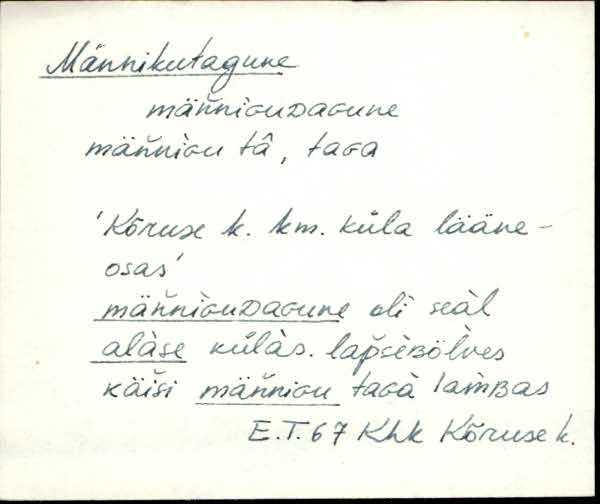 Männikutagune
män̆niɢuᴅaɢune
män̆niɢu tâ, taɢa
'Kõruse k. km. küla lääne-
osas'
män̆niɢuᴅaɢune oli seàl
alàse külàs. lap̆sèʙöl̀ves
käisi män̆niɢu taɢà lam̀ʙas
E.T.67 Khk Kõruse k.